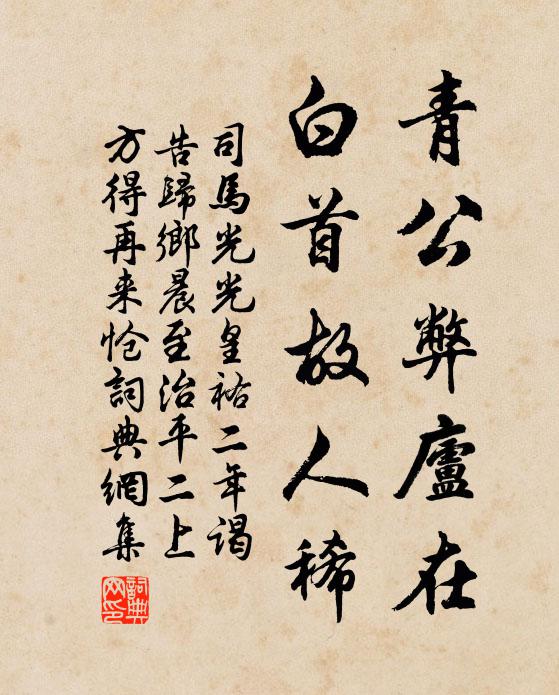 青公弊廬在
白首故人稀
司馬光光皇祐二年謁
告歸鄉晨至治平二上
方得再来怆詞典網集
詞典网印